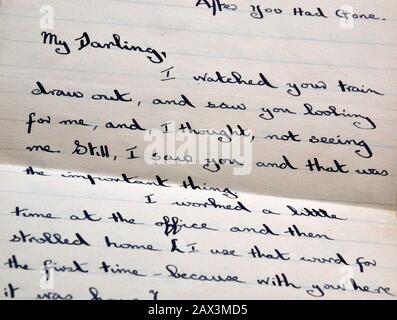 After You Had Gone.
My Darling,
I watched your train
draw out, and saw you looking
for me, and, I thought, not seeing
me. Still, I saw you and that was
the important thing
I worked a little
time at the office and then
strolled home [I use that word for
the first time - because with you here
it was
alamy
Image ID: 2AX3MD5
www.alamy.com